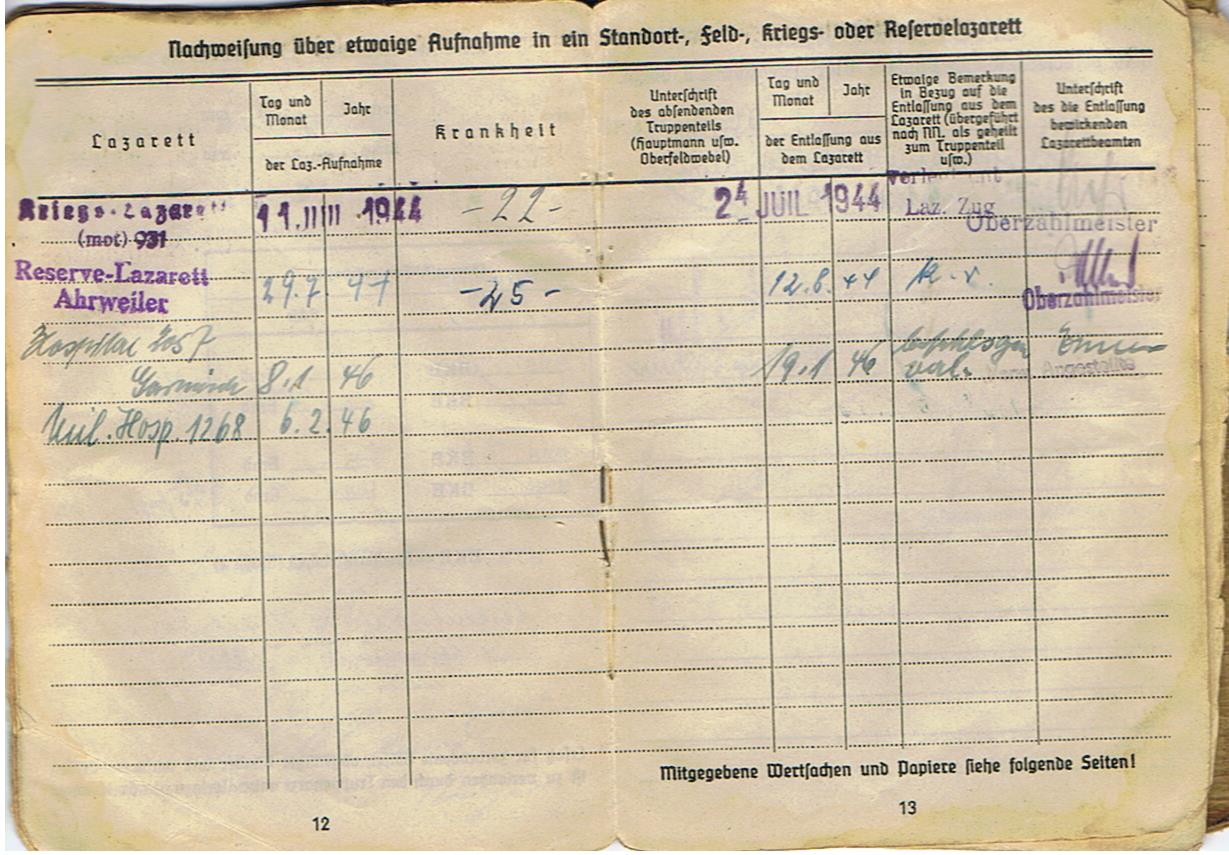 Nachweisung über etwaige Aufnahme in ein Standort-, Feld-, Kriegs- oder Reservelazarett
Lazarett
Tag und
Monat
Jahr
der Laz.-Aufnahme
Krankheit
Unterschrift
des absendenden
Truppenteils
(Hauptmann usw.
Oberfeldwebel)
Tag und
Monat
Jahr
der Entlassung aus
dem Lazarett
Etwaige Bemerkung
in Bezug auf die
Entlassung aus dem
Lazarett (übergeführt
nach NN. als geheilt
zum Truppenteil
usw.)
Unterschrift
des die Entlassung
bewirkenden
Lazarettbeamten
Kriegs-Lazarett 11. 1944 -22- 24 JUIL 1944
Laz. Zug
(mot) 931 Oberzahlmeister
Reserve-Lazarett
Ahrweiler 29.7 44 -25- 12.8. 44
Oberzahlmeister
Hospital 1057
Garmisch 8.1 46 19.1 46
Mil. Hosp. 1268 6.2.46
Mitgegebene Wertsachen und Papiere siehe folgende Seiten!
12
13